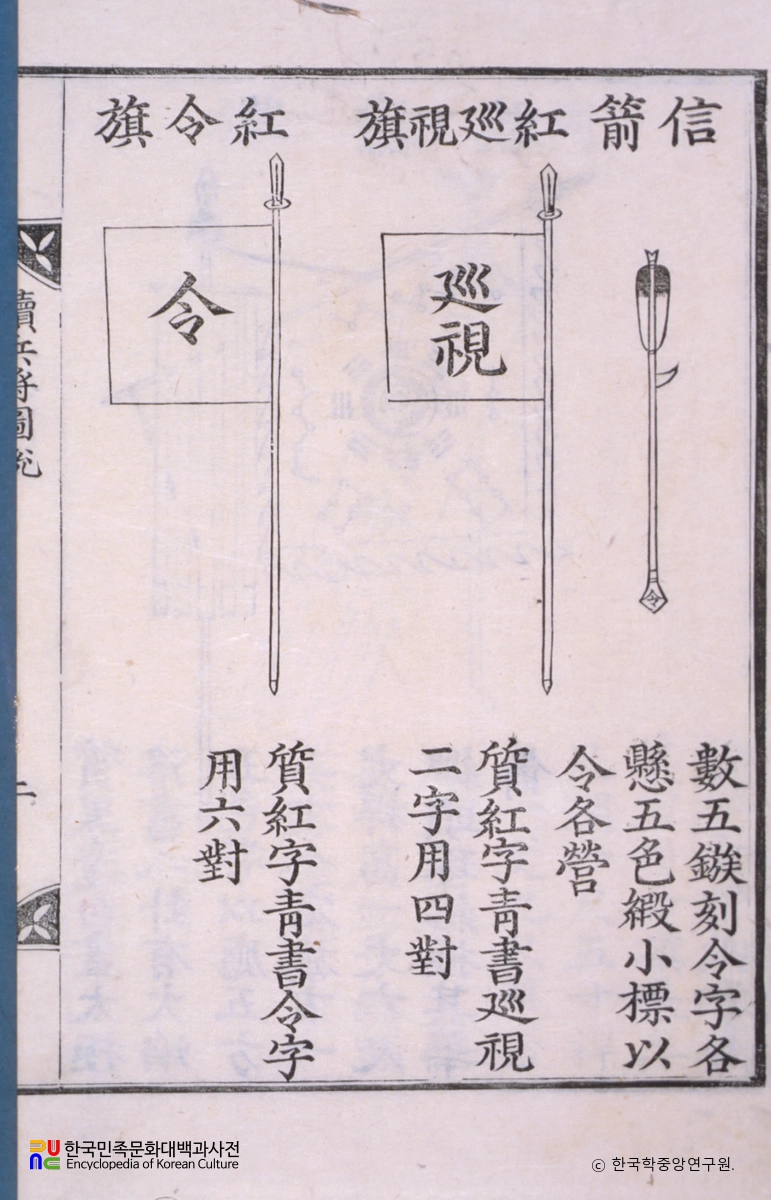 信箭
紅巡視旗
紅令旗
令
巡視
令
數五鏃刻令字各
懸五色緞小標以
令各營
質紅字靑書巡視
二字用四對
質紅字靑書令字
用六對
續兵將圖說
二
한국민족문화대백과사전
Encyclopedia of Korean Culture
© 한국학중앙연구원.